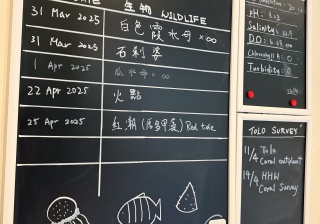 生物 WILDLIFE
31 Mar 2025 白色霞水母 × ∞
31 Mar 2025 石剎婆
1 Apr 2025 瓜水母 × ∞
22 Apr 2025 火點
25 Apr 2025 紅潮 Red tide
pH:
Salinity:
D.O:
Chlorophyll A: 0
Turbidity: 0
TOLO SURVEY
11/4 Tolo
Coral outplant
19/4 HHW
Coral Survey